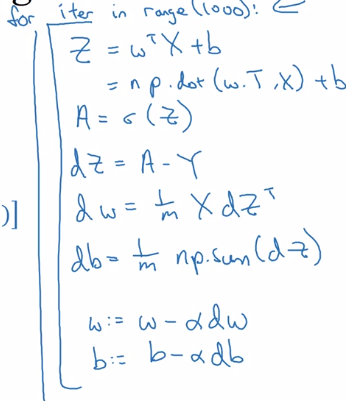 for iter in range(1000):
Z = wᵀX + b
= np.dot(w.T, X) + b
A = σ(Z)
dZ = A - Y
dw = 1/m X dZᵀ
)]
db = 1/m np.sum(dZ)
w := w - αdw
b := b - αdb